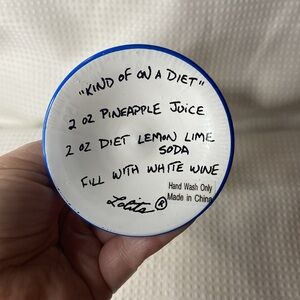 "KIND OF ON A DIET"
2 OZ PINEAPPLE JUICE
2 OZ DIET LEMON LIME
SODA
FILL WITH WHITE WINE
Hand Wash Only
Made in China
Lolita ®